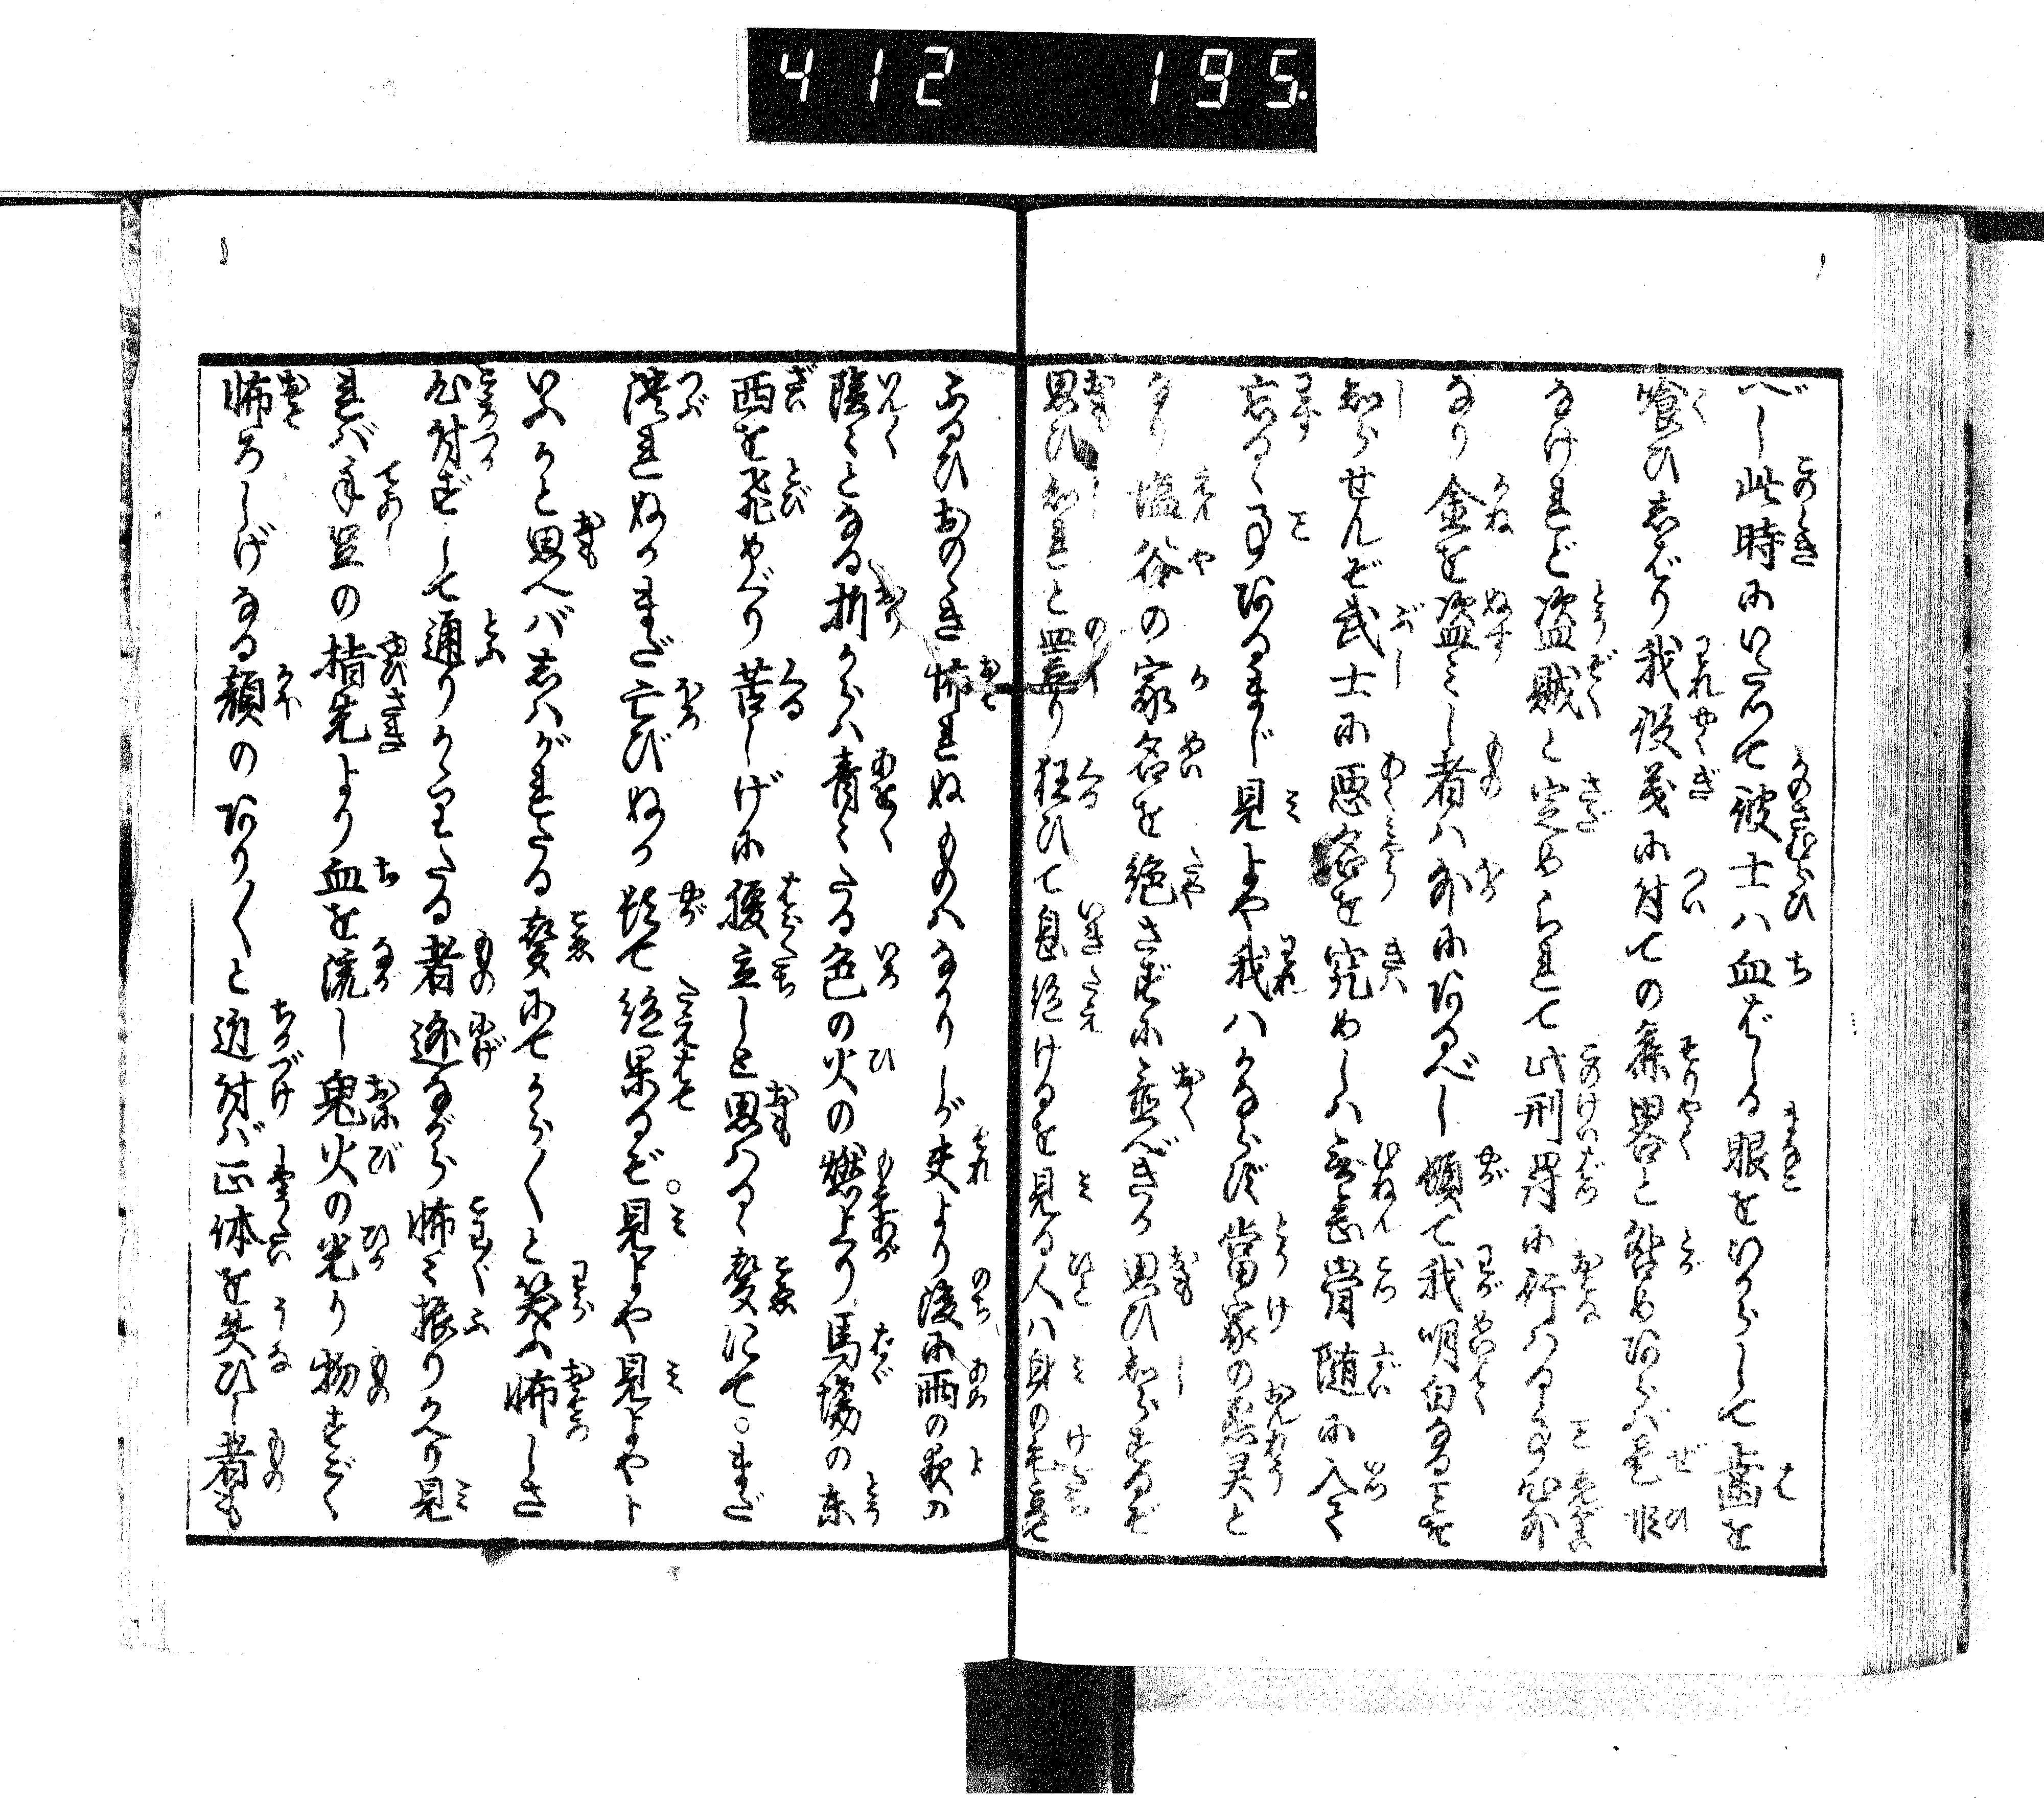 412 195.
べし此時にいたつて彼士ハ血ばしる眼をひらかして歯を
喰ひしばり我役義に付ての麁畧と咎めあらバ是非
なけれど盗賊と定められて此刑罪に行ハるゝ事罪
なり金を盗ミし者ハ外にあるべし頓て我明白なる事を
知らせんぞ武士に悪名を究めしハ無念骨随に入て
忘るゝ事あるまじ見よや我ハかならず當家の悪霊と
なり塩谷の家名を絶さずに置べきか思ひ知らするぞ
思ひ知れと罵り狂ひて息絶けるを見る人ハ身の毛立て
ふるひおのゝき怖れぬものハなかりしが夫より後に雨の夜の
陰々となる折からハ青々たる色の火の燃上り馬場の東
西を飛めぐり苦しげに腹立しと思ハるゝ聲にて。まだ
潰れぬかまだ亡びぬか頓て絶果るぞ。見よや見よやト
いふかと思へバしハがれたる聲にてからからと笑ふ怖しさ
心付ずして通りかゝりたる者迯ながら怖々振りかへり見
れバ手足の指先より血を流し鬼火の光り物すごく
怖ろしげなる顔のあり〱と近付バ正体を失ひし者も